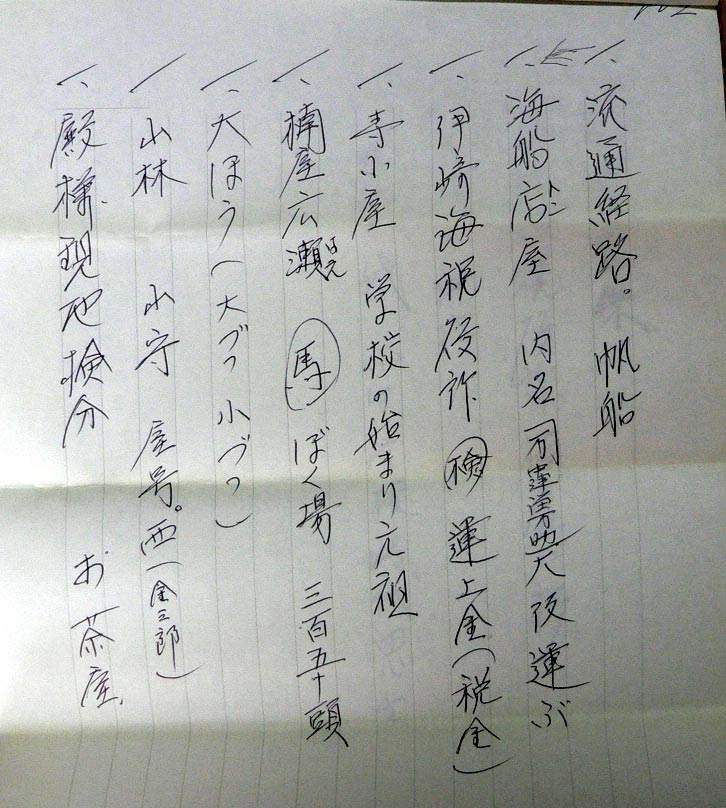 一、流通経路。帆船
一、海船店屋 内名 大阪運ぶ
一、伊崎海税役所 検 運上金(税金)
一、寺小屋 学校の始まり元祖
一、楠屋広瀬 馬 ぼく場 三百五十頭
一、大ほう(大づつ小づつ)
山林 山守 屋号。西(金三郎)
一、殿様、現地検分 お茶屋、